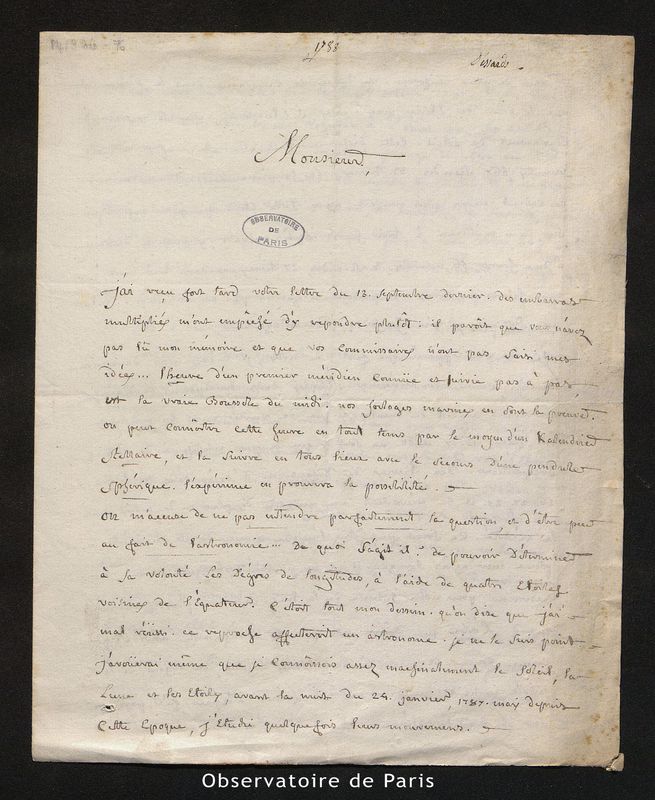 1788
Monsieur,
OBSERVATOIRE
DE
PARIS
j'ai reçu fort tard votre lettre du 13. septembre dernier. des embarras
multipliés m'ont empêché d'y repondre plutôt: il paroît que vous n'avez
pas lû mon mémoire et que vos Commissaires n'ont pas saisi mes
idées... l'heure d'un premier méridien Connüe et suivie pas à pas,
est la vraie Boussole du midi. nos horloges marines en sont la preuve.
on peut Connoître Cette heure en tout tems par le moyen d'un Kalendrier
Stellaire, et la suivre en tous lieux avec le secours d'une pendule
sphérique. l'expérience en prouvera la possibilité.
on m'accuse de ne pas entendre parfaitement la question, et d'être peu
au fait de l'astronomie... De quoi s'agit il? de pouvoir Déterminer
à sa volonté Les Dégrés de longitudes, à l'aide de quatre Etoiles
voisines de l'Equateur. C'étoit tout mon dessin. qu'on dise que j'ai
mal réüssi. ce reproche affecteroit un astronome. je ne le suis point
j'avoüerai même que je Connoissois assez machinalement le Soleil, la
Lune et les Etoiles, avant la nuit du 28. janvier 1787. mais depuis
Cette Epoque, j'Etudie quelquefois leurs mouvemens.
Observatoire de Paris